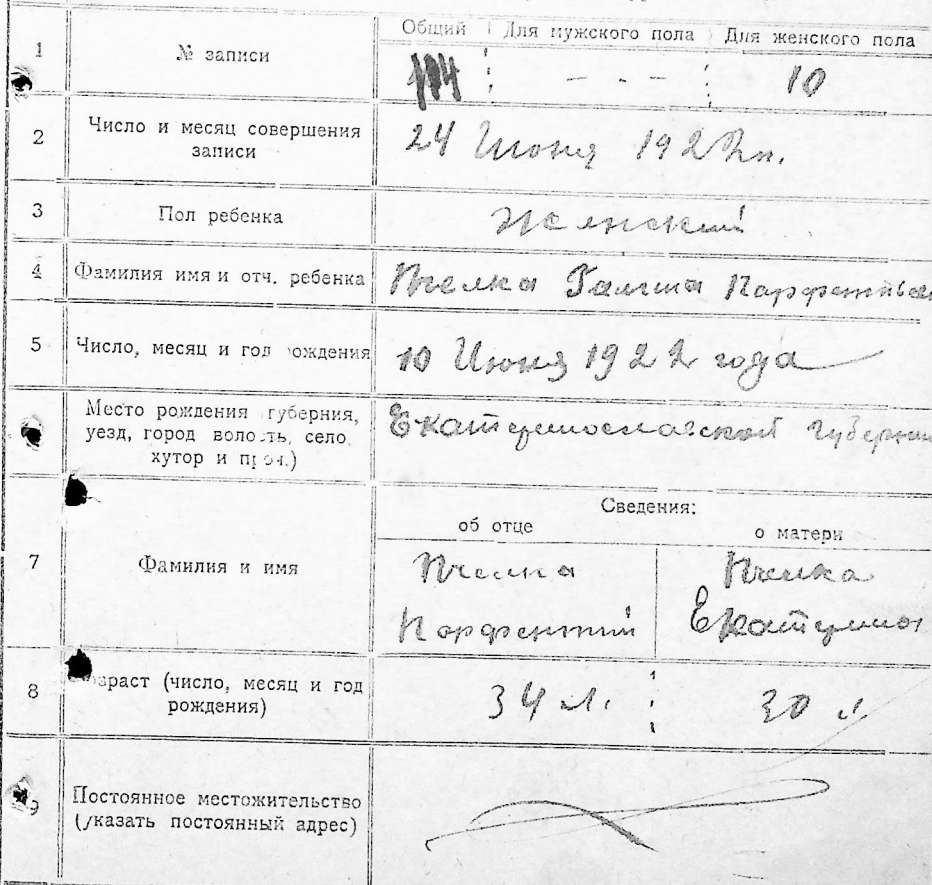 Общий Для мужского пола Для женского пола
1 № записи - - - 10
2 Число и месяц совершения
записи
24 Июня 1922г.
3 Пол ребенка Женский
4 Фамилия имя и отч. ребенка Пчелка Галина
5 Число, месяц и год рождения 10 Июня 1922 года
Место рождения губерния,
уезд, город волость, село,
хутор и проч.)
Екатеринославской губернии
Сведения:
об отце о матери
7 Фамилия и имя Пчелка Пчелка
Парфентий Екатерина
8 Возраст (число, месяц и год
рождения)
34 л. 30 л
9 Постоянное местожительство
(указать постоянный адрес)